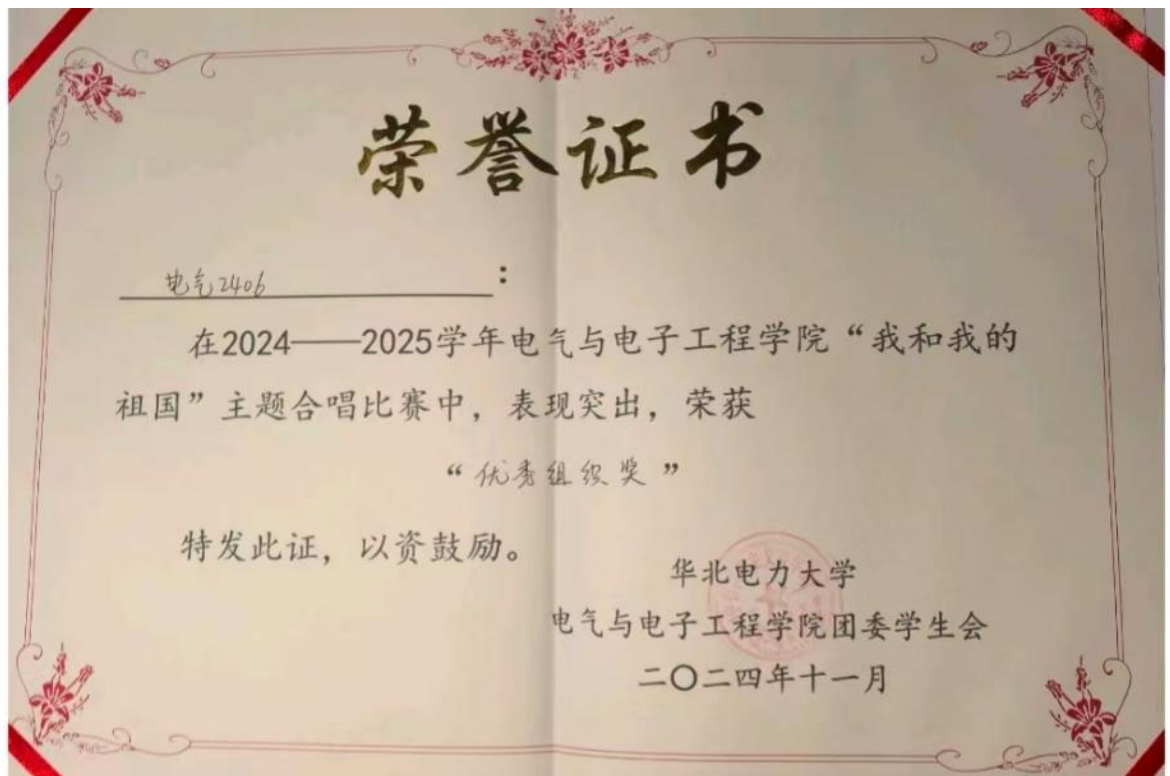 荣誉证书
电气2406：
在2024——2025学年电气与电子工程学院“我和我的
祖国”主题合唱比赛中，表现突出，荣获
“优秀组织奖”
特发此证，以资鼓励。
华北电力大学
电气与电子工程学院团委学生会
二〇二四年十一月